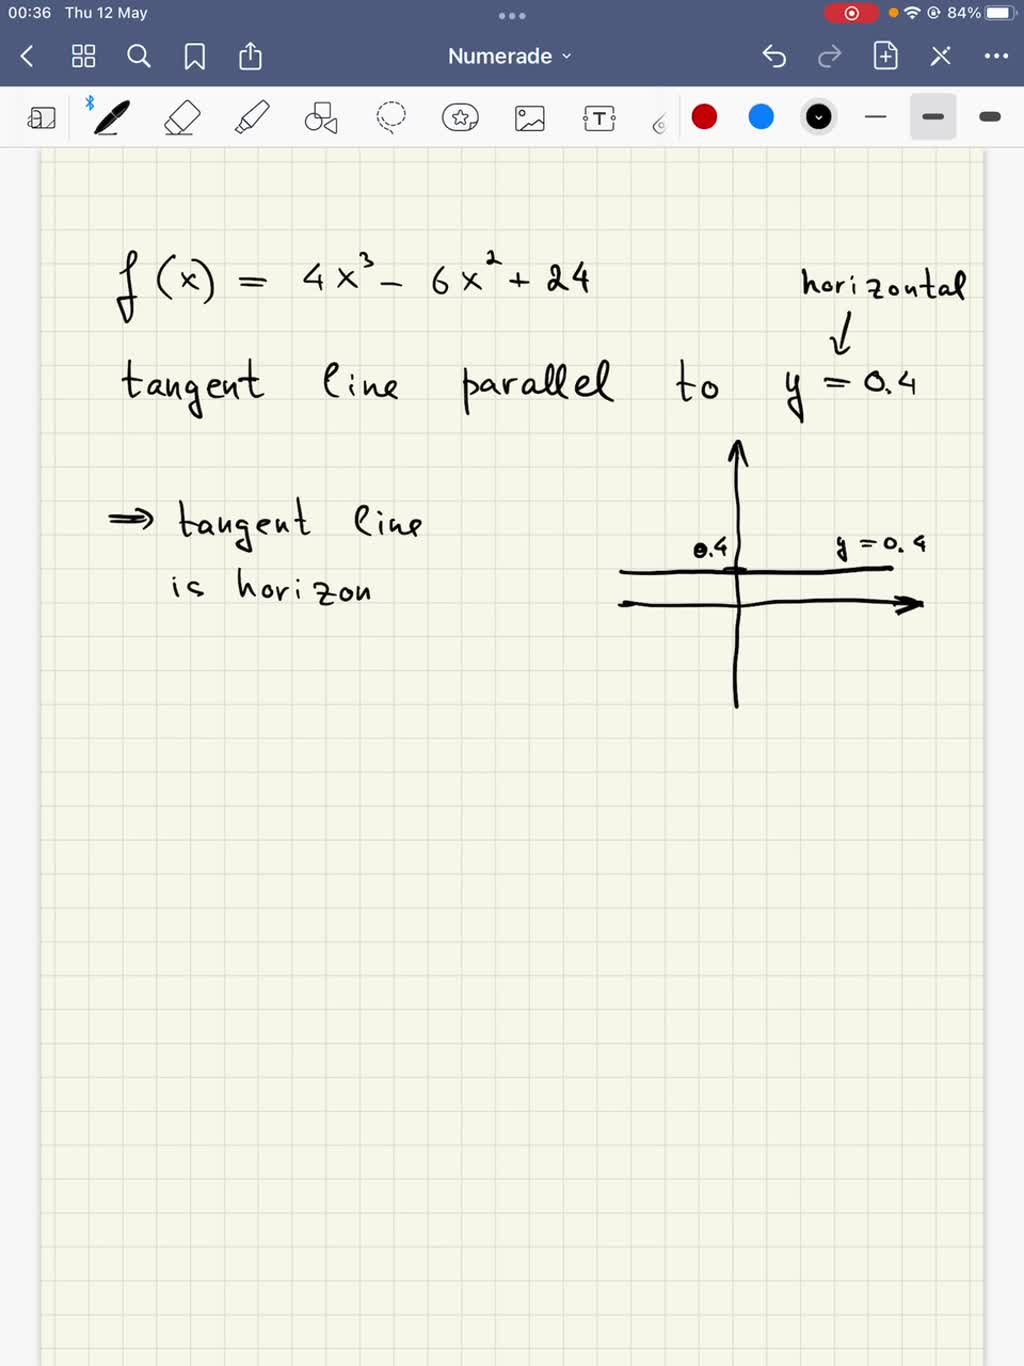 00:36 Thu 12 May 84%
Numerade
T
f(x) = 4x³ - 6x² + 24
horizontal
tangent line parallel to y = 0.4
⇒ tangent line
0.4 y = 0.4
is horizon